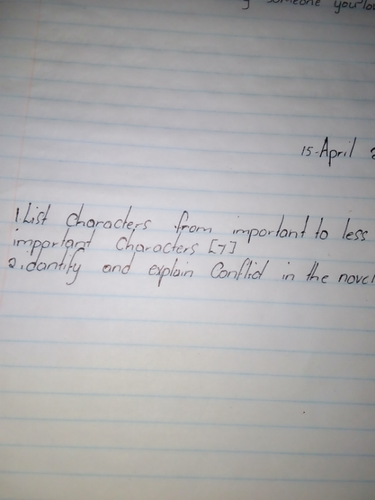 someone you lo
15-April 2
1 List characters from important to less
important Characters [7]
2. idantify and explain Conflict in the novel